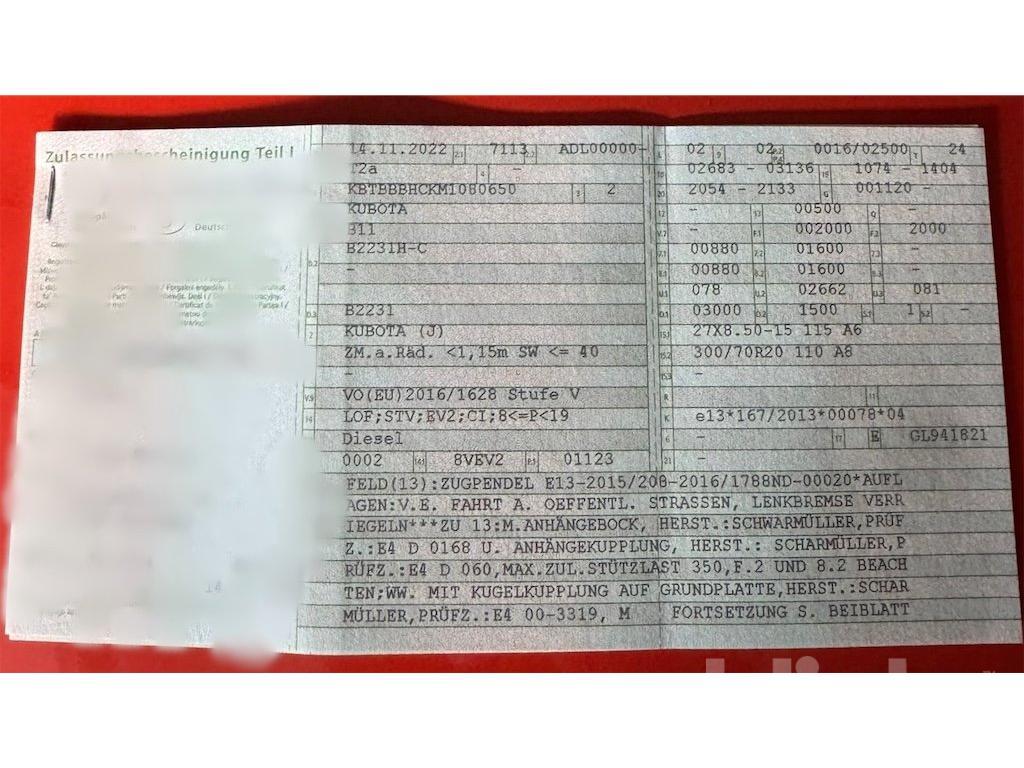 Zulassungsbescheinigung Teil I
Deutsc
14.11.2022 2.1 7113 2.2 ADL00000-
T2a 4 -
KBTBBBHCKM1080650 3 2
KUBOTA
B11
B2231H-C
D.2 -
D.3 B2231
2 KUBOTA (J)
ZM.a.Räd. <1,15m SW <= 40
-
V.9 VO(EU)2016/1628 Stufe V
14 LOF;STV;EV2;CI;8<=P<19
Diesel
0002 14.1 8VEV2 P.1 01123
L 02 9 02 P.2 P.4 0016/02500 T 24
18 02683 - 03136 19 1074 - 1404
20 2054 - 2133 G 001120 -
12 - 13 00500 Q -
V.7 - F.1 002000 F.2 2000
7.1 00880 7.2 01600 7.3 -
8.1 00880 8.2 01600 8.3 -
U.1 078 U.2 02662 U.3 081
O.1 03000 O.2 1500 S.1 1 S.2 -
15.1 27X8.50-15 115 A6
15.2 300/70R20 110 A8
15.3 -
R 11
K e13*167/2013*00078*04
6 - 17 E GL941821
21 -
FELD(13):ZUGPENDEL E13-2015/208-2016/1788ND-00020*AUFL
AGEN:V.E. FAHRT A. OEFFENTL. STRASSEN, LENKBREMSE VERR
IEGELN***ZU 13:M.ANHÄNGEBOCK, HERST.:SCHWARMÜLLER,PRÜF
Z.:E4 D 0168 U. ANHÄNGEKUPPLUNG, HERST.: SCHARMÜLLER,P
RÜFZ.:E4 D 060,MAX.ZUL.STÜTZLAST 350,F.2 UND 8.2 BEACH
TEN;WW. MIT KUGELKUPPLUNG AUF GRUNDPLATTE,HERST.:SCHAR
MÜLLER,PRÜFZ.:E4 00-3319, M FORTSETZUNG S. BEIBLATT